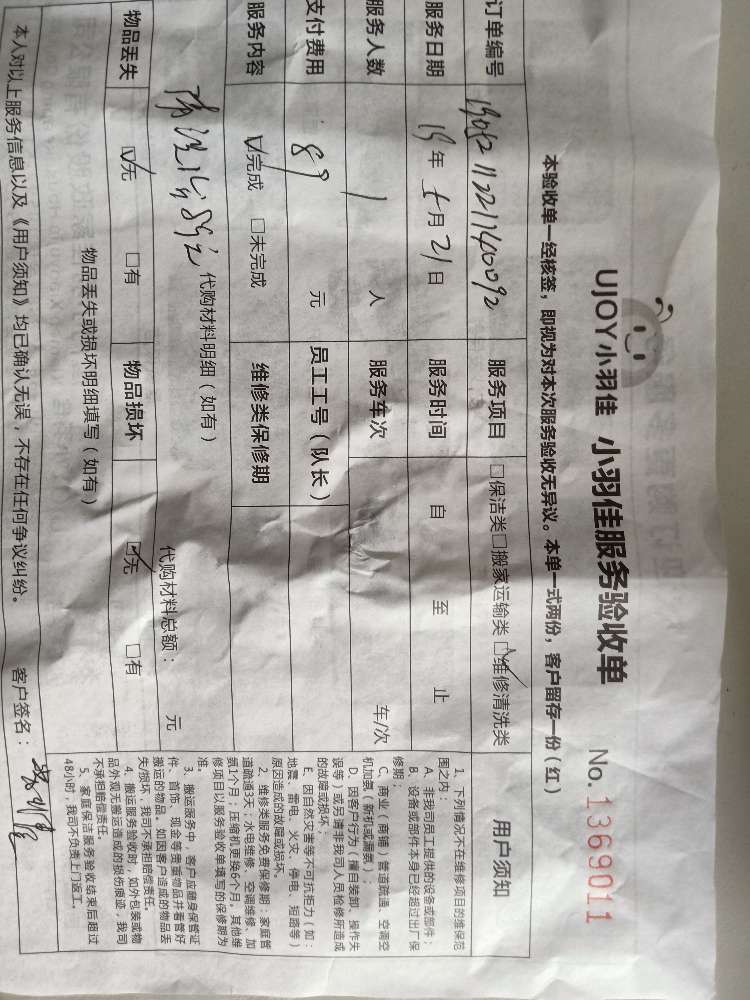 UJOY小羽佳 小羽佳服务验收单 No.1369011
本验收单一经核签，即视为对本次服务验收无异议。本单一式两份，客户留存一份（红）
订单编号
服务项目 □保洁类□搬家运输类☑维修清洗类
服务日期 19年5月21日
服务时间 自 至 止
服务人数 1 人
服务车次 车/次
支付费用 89 元
员工工号（队长）
服务内容 ☑完成 □未完成
维修类保修期
89元
代购材料明细（如有）
代购材料总额： 元
物品丢失 ☑无 □有
物品损坏 ☑无 □有
物品丢失或损坏明细填写（如有）
本人对以上服务信息以及《用户须知》均已确认无误，不存在任何争议纠纷。
客户签名：
用户须知
1、下列情况不在维修项目的维保范
围之内：
A、非我司员工提供的设备或部件；
B、设备或部件本身已经超过出厂保
修期；
C、商业（商铺）管道疏通、空调空
机加氨（新机或漏氨）；
D、因客户行为（擅自装卸、操作失
误等）或另请非我司人员检修所造成
的故障或损坏，
E、因自然灾害等不可抗拒力（如：
地震、雷电、火灾、停电、短路等）
原因造成的故障或损坏。
2、维修类服务免费保修期：家庭管
道疏通3天；水电维修、空调维修、加
氨1个月；压缩机更换6个月，其他维
修项目以服务验收单填写的保修期为
准。
3、搬运服务中，客户应留身保管证
件、首饰、现金等贵重物品并看管好
搬运的物品，如因客户造成的物品丢
失/损坏，我司不承担赔偿责任。
4、搬运服务验收时，如外包装或物
品外观无搬运造成的损伤痕迹，我司
不承担赔偿责任。
5、家庭保洁服务验收结束后超过
48小时，我司不负责上门返工。